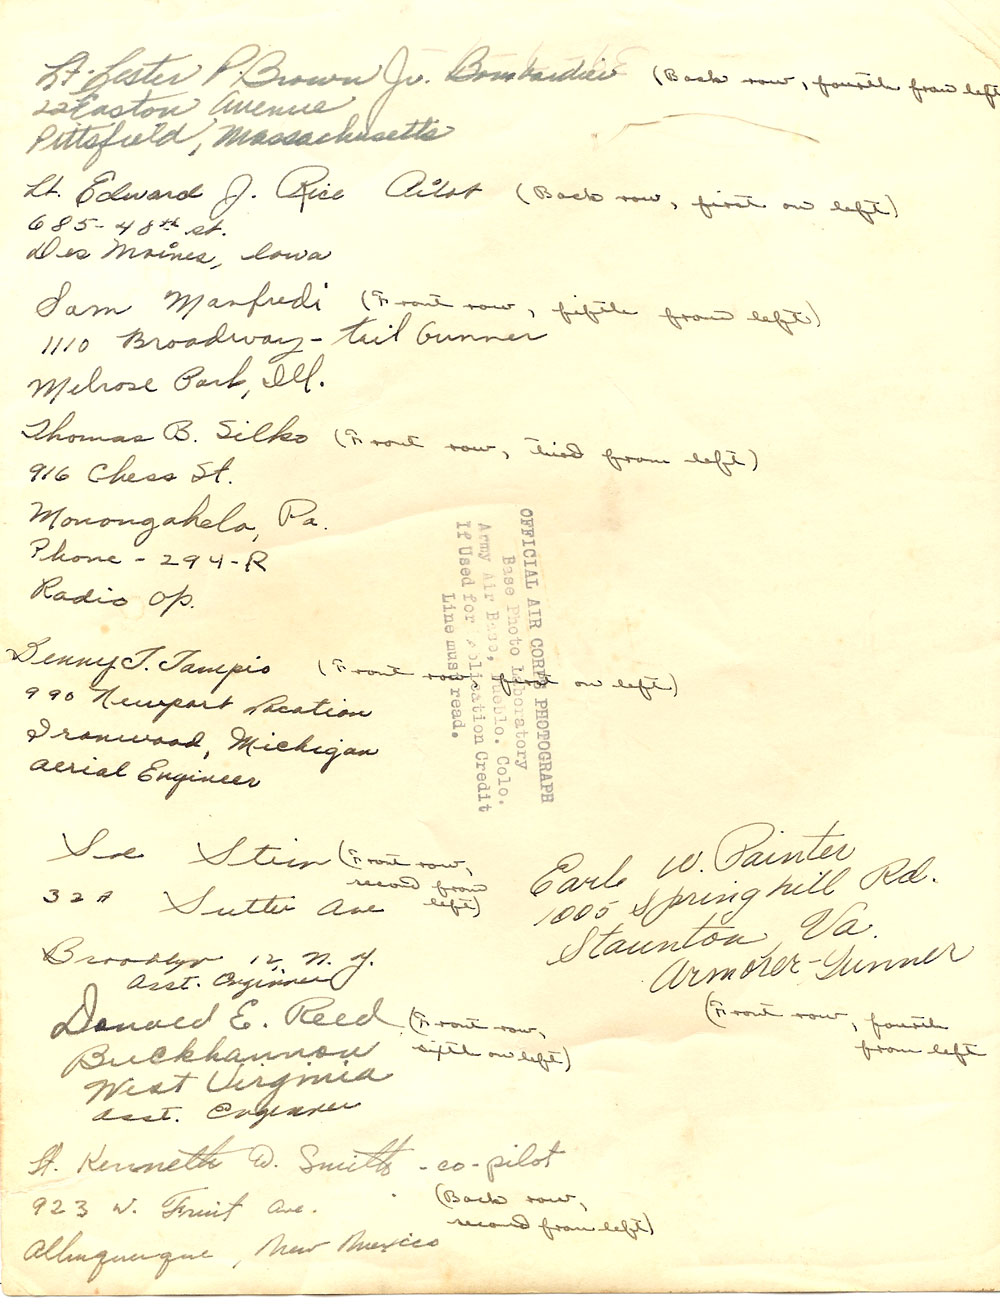 Lt. Lester P. Brown Jr. Bombardier (Back row, fourth from left
22 Easton Avenue
Pittsfield, Massachusetts
Lt. Edward J. Rice Pilot (Back row, first on left)
685-48th st.
Des Moines, Iowa
Sam Manfredi (Front row, fifth from left)
1110 Broadway - tail Gunner
Melrose Park, Ill.
Thomas B. Silko (Front row, third from left)
916 Chess St.
Monongahela, Pa.
Phone - 294-R
Radio Op.
Benny T. Tampio (Front row, first on left)
990 Newport Location
Ironwood, Michigan
Aerial Engineer
OFFICIAL AIR CORPS PHOTOGRAPH
Base Photo Laboratory
Army Air Base, Pueblo. Colo.
If Used for Publication Credit
Line must read.
Stein (Front row,
second from
left)
32 Sutter Ave
Brooklyn 12, N.Y.
Asst. Engineer
Earl W. Painter
1005 Springhill Rd.
Staunton Va.
Armorer-Gunner
(Front row, fourth
from left
Donald E. Reed (Front row,
sixth on left)
Buckhannon
West Virginia
Asst. Engineer
Lt. Kenneth D. Smith - co-pilot
923 W. Fruit Ave.
(Back row,
second from left)
Albuquerque, New Mexico